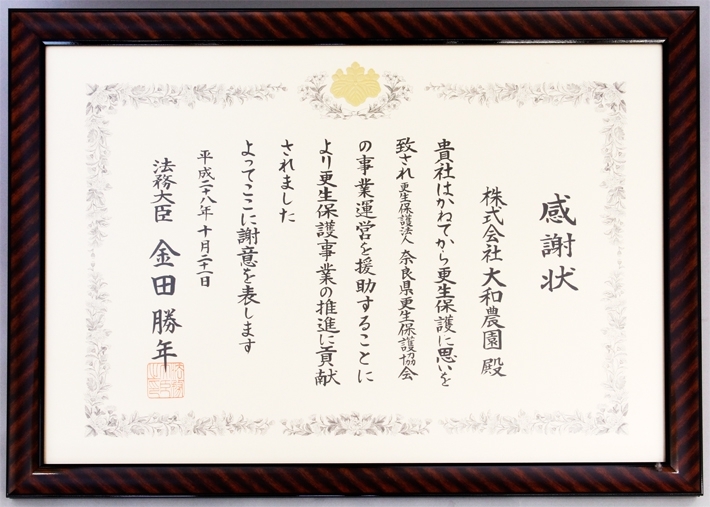 感謝状
株式会社 大和農園 殿
貴社はかねてから更生保護に思いを
致され更生保護法人 奈良県更生保護協会
の事業運営を援助することに
より更生保護事業の推進に貢献
されました
よってここに謝意を表します
平成二十八年十月二十一日
法務大臣 金田勝年